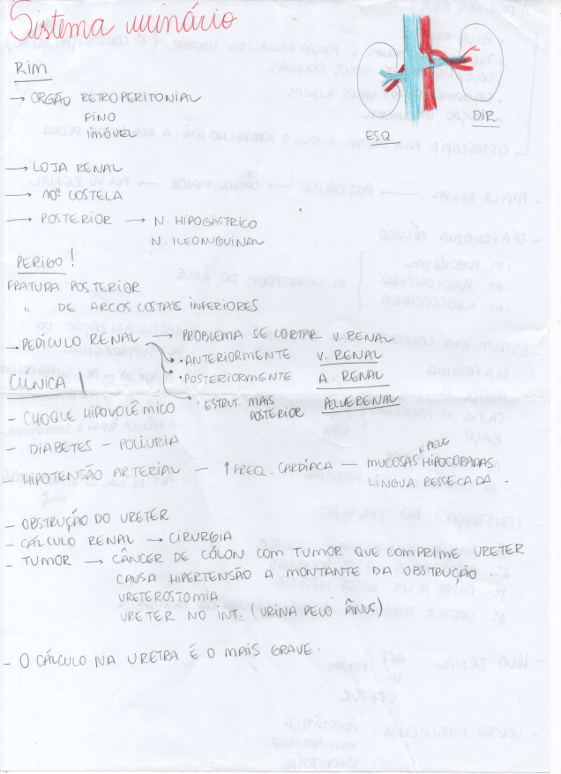 Sistema urinário
ESQ
DIR.
RIM
→ ORGÃO RETROPERITONIAL
FINO
IMÓVEL
→ LOJA RENAL
→ 10ª COSTELA
→ POSTERIOR → N. HIPOGÁSTRICO
N. ILEOINGUINAL
PERIGO!
FRATURA POSTERIOR
" DE ARCOS COSTAIS INFERIORES
→ PEDÍCULO RENAL → PROBLEMA SE CORTAR V. RENAL
• ANTERIORMENTE V. RENAL
• POSTERIORMENTE A. RENAL
• ESTRUT. MAIS POSTERIOR PELVE RENAL
CLÍNICA!
- CHOQUE HIPOVOLÊMICO
- DIABETES - POLIURIA
- HIPOTENSÃO ARTERIAL - ↑ FREQ. CARDÍACA - MUCOSAS, PELE HIPOCORADAS
LÍNGUA RESSECADA.
- OBSTRUÇÃO DO URETER
- CÁLCULO RENAL → CIRURGIA
- TUMOR → CÂNCER DE CÓLON COM TUMOR QUE COMPRIME URETER
CAUSA HIPERTENSÃO A MONTANTE DA OBSTRUÇÃO.
URETEROSTOMIA
URETER NO INT. (URINA PELO ÂNUS)
- O CÁLCULO NA URETRA É O MAIS GRAVE.